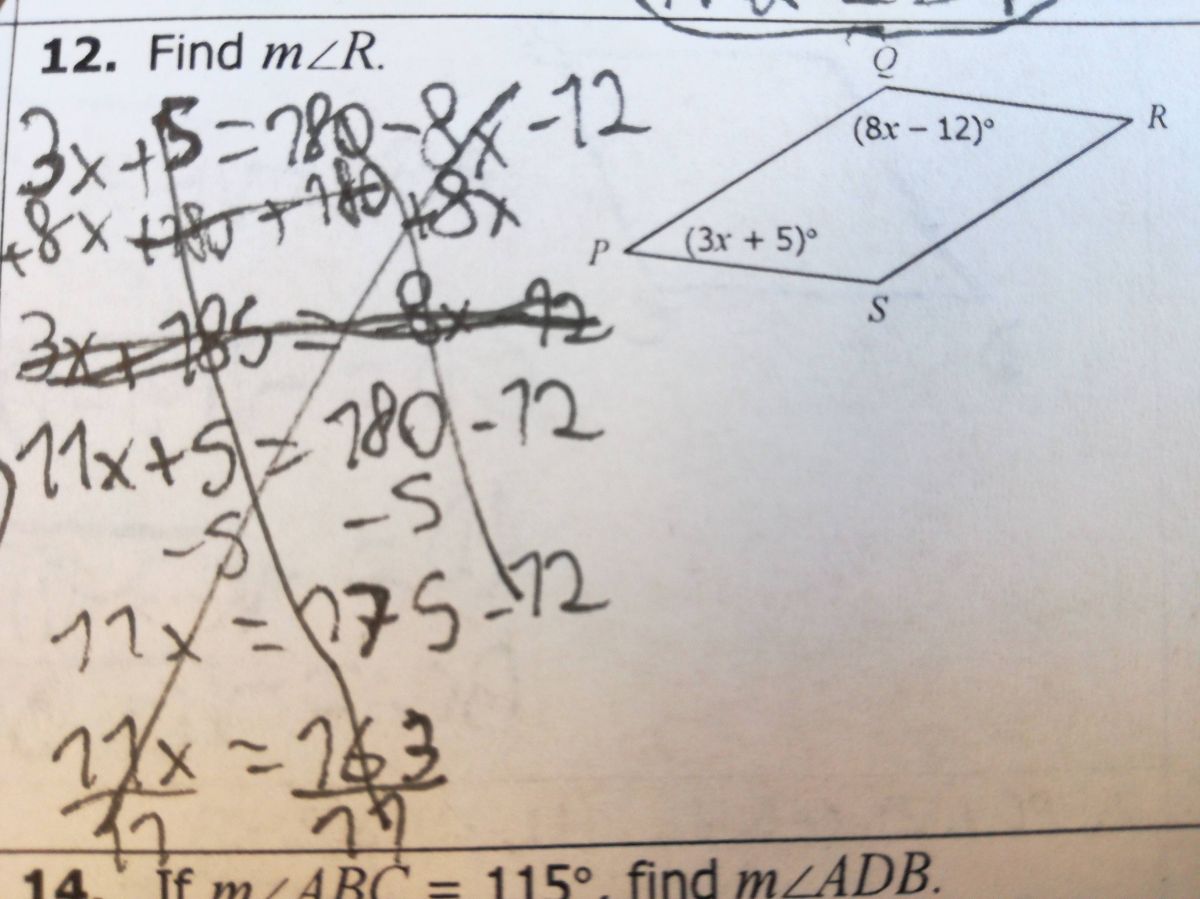 12. Find m∠R.
Q
R
(8x − 12)°
P
(3x + 5)°
S
3x + 5 = 180 - 8x - 12
+8x +180 + 180 +8x
3x + 185 = -8x 12
11x + 5 = 180 - 12
-5 -5
11x = 175 - 12
11x = 163
11 11
14. If m∠ABC = 115°, find m∠ADB.